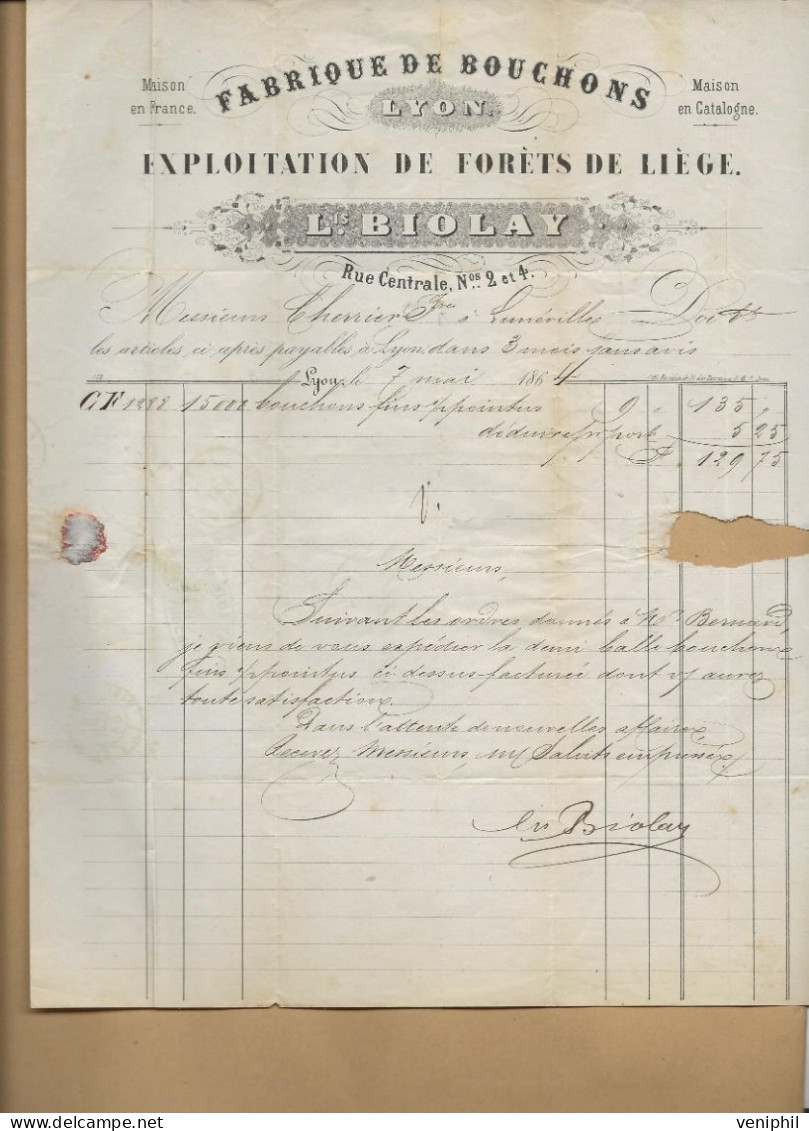 Maison
en France.
FABRIQUE DE BOUCHONS
LYON.
Maison
en Catalogne.
EXPLOITATION DE FORÈTS DE LIÈGE.
Lis BIOLAY
Rue Centrale, Nos 2 et 4.
Messieurs Cherrier Fres à Lunéville Doivt
les articles ci après payables à Lyon dans 3 mois sans avis
Lyon, le 7 mai 1864
CF 1288 15000 bouchons fins ppointus 9 " 135 "
déduire pr port 5 25
F. 129 75
V.
Messieurs,
Suivant les ordres donnés à Mr Bernard,
je viens de vous expédier la demi balle bouchons
fins ppointus ci dessus facturée dont vs aurez
toute satisfaction.
Dans l'attente de nouvelles affaires,
Recevez Messieurs, mes Saluts empressés.
Lis Biolay
veniphil